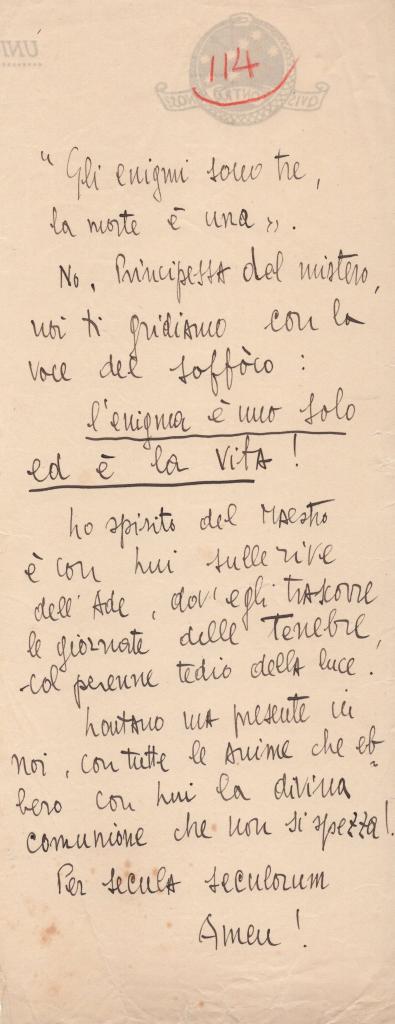 114
"Gli enigmi sono tre,
la morte è una".
No, Principessa del mistero,
noi ti gridiamo con la
voce del soffòco:
l'enigma è uno solo
ed è la VitA!
Lo spirito del Maestro
è con Lui sulle rive
dell'Ade, dov'egli trascorre
le giornate delle Tenebre,
col perenne tedio della luce.
Lontano ma presente in
noi, con tutte le Anime che eb-
bero con Lui la divina
comunione che non si spezza!
Per secula seculorum
Amen!